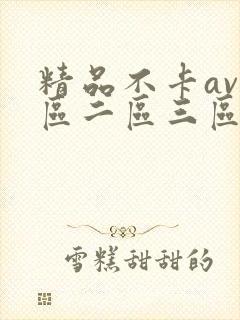 精品不卡av
區二區三區
雪糕甜甜的